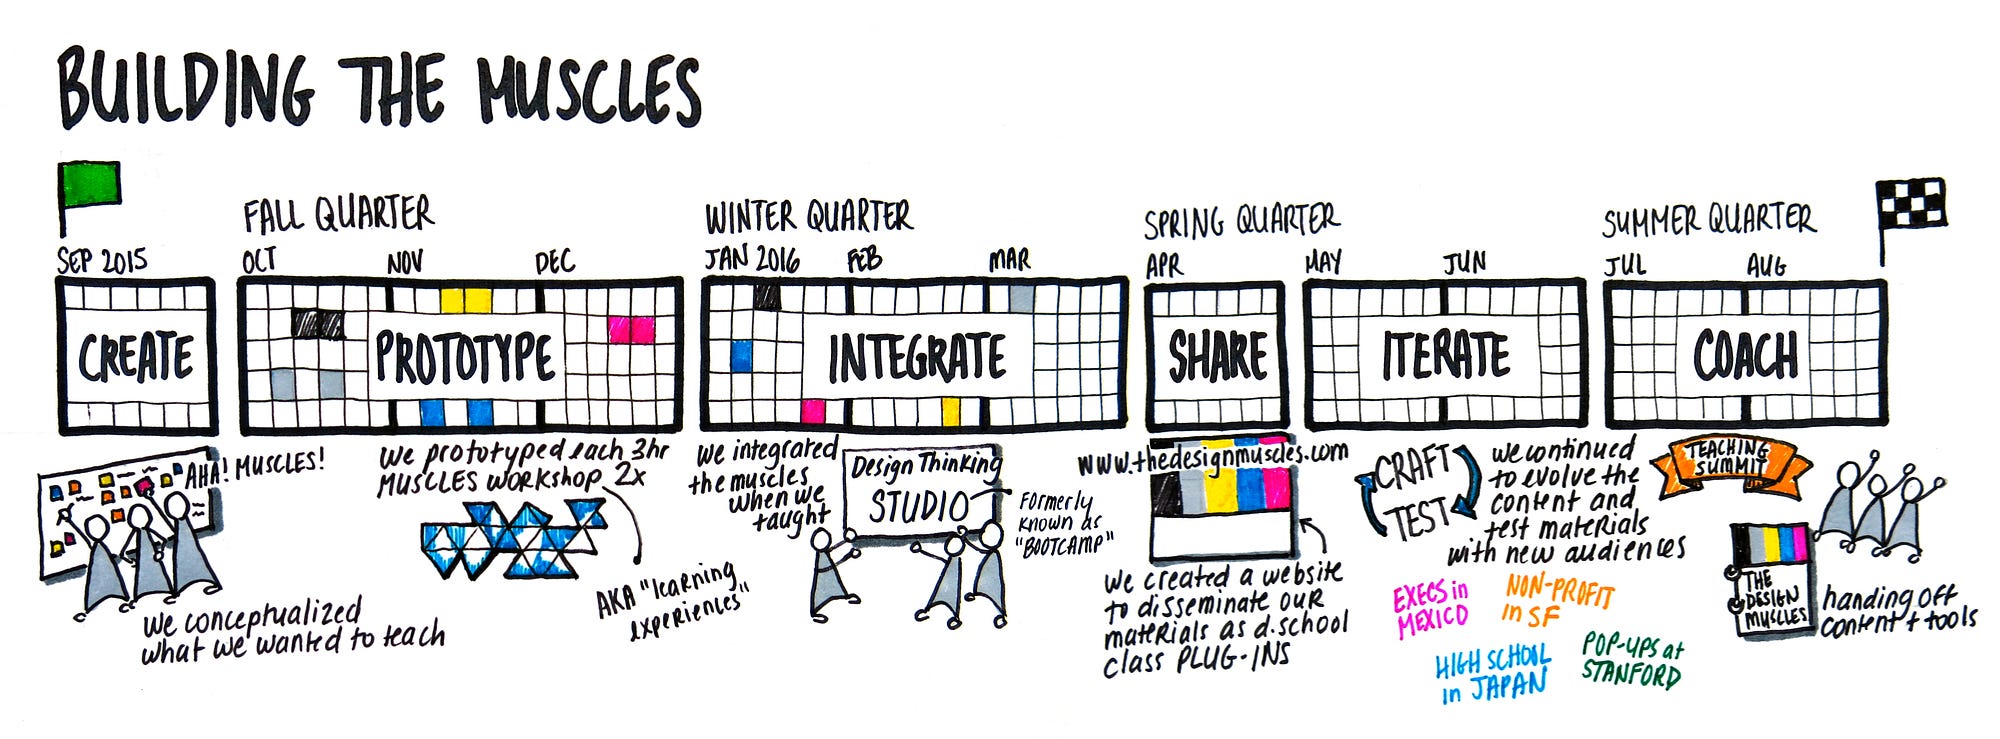 BUILDING THE MUSCLES
SEP 2015
CREATE
AHA! MUSCLES!
we conceptualized
what we wanted to teach
FALL QUARTER
OCT
NOV
DEC
PROTOTYPE
we prototyped each 3hr
MUSCLES WORKSHOP 2x
AKA "learning
experiences"
WINTER QUARTER
JAN 2016
FEB
MAR
INTEGRATE
we integrated
the muscles
when we
taught
Design Thinking
STUDIO
Formerly
known as
"BOOTCAMP"
SPRING QUARTER
APR
SHARE
www.thedesignmuscles.com
we created a website
to disseminate our
materials as d.school
class PLUG-INS
MAY
JUN
ITERATE
CRAFT
TEST
we continued
to evolve the
content and
test materials
with new audiences
EXECS in
MEXICO
NON-PROFIT
in SF
HIGH SCHOOL
in JAPAN
POP-UPS at
STANFORD
SUMMER QUARTER
JUL
AUG
COACH
TEACHING
SUMMIT
THE
DESIGN
MUSCLES
handing off
content + tools